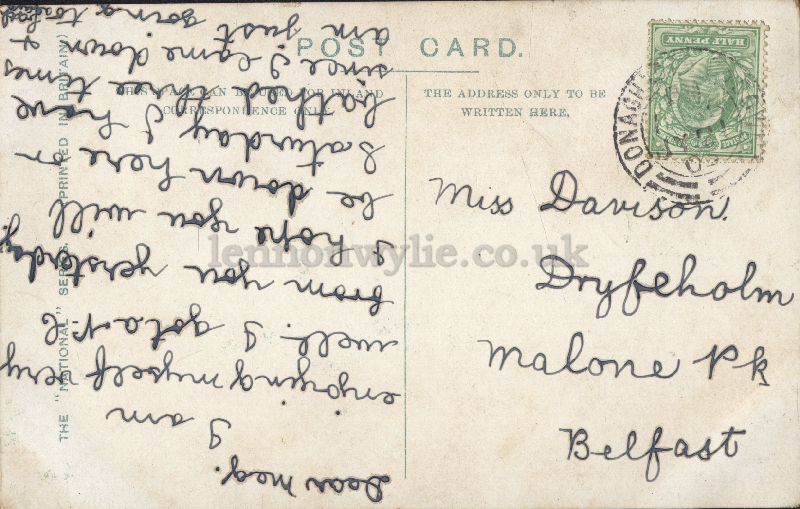 POST CARD.
THIS SPACE CAN BE USED FOR INLAND
CORRESPONDENCE ONLY.
THE ADDRESS ONLY TO BE
WRITTEN HERE,
THE "NATIONAL" SERIES. (PRINTED IN BRITAIN)
HALF PENNY
DONAGH
Miss Davison.
Dryfeholm
Malone Pk
Belfast
Dear Meg.
I am
enjoying myself very
well. I got a P.C
from you yersterday.
I hope you will
be down here on
Saturday I have
bathed three times
since I came down &
am just going to
lennonwylie.co.uk